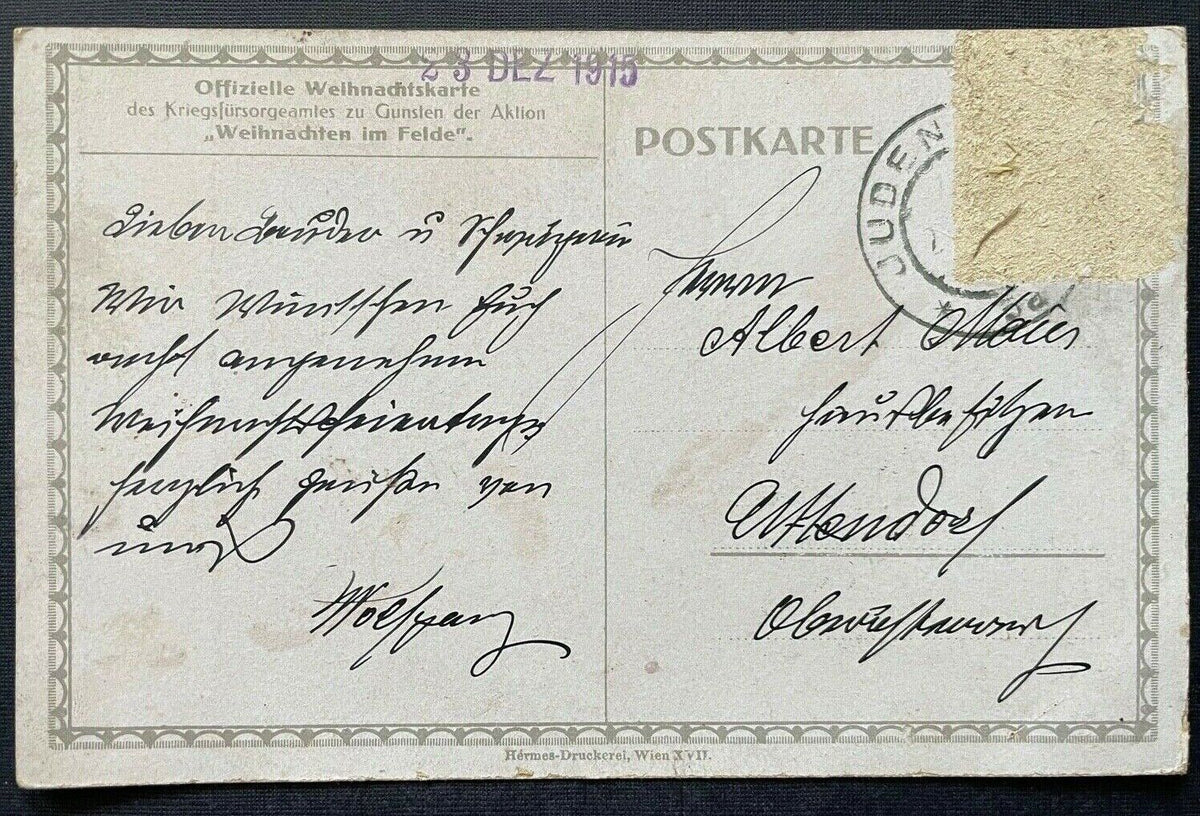 23 DEZ 1915
Offizielle Weihnachtskarte
des Kriegsfürsorgeamtes zu Gunsten der Aktion
„Weihnachten im Felde".
POSTKARTE
JUDEN
Lieben Bruder u Schwägerin
Wir Wünschen Euch
recht angenehme
Weihnachtsfeiertage,
herzliche Grüße von
uns
Wolfgang
Herrn
Albert Maier
Hausbesitzer
Uttendorf
Oberösterreich
Hermes-Druckerei, Wien XVII.